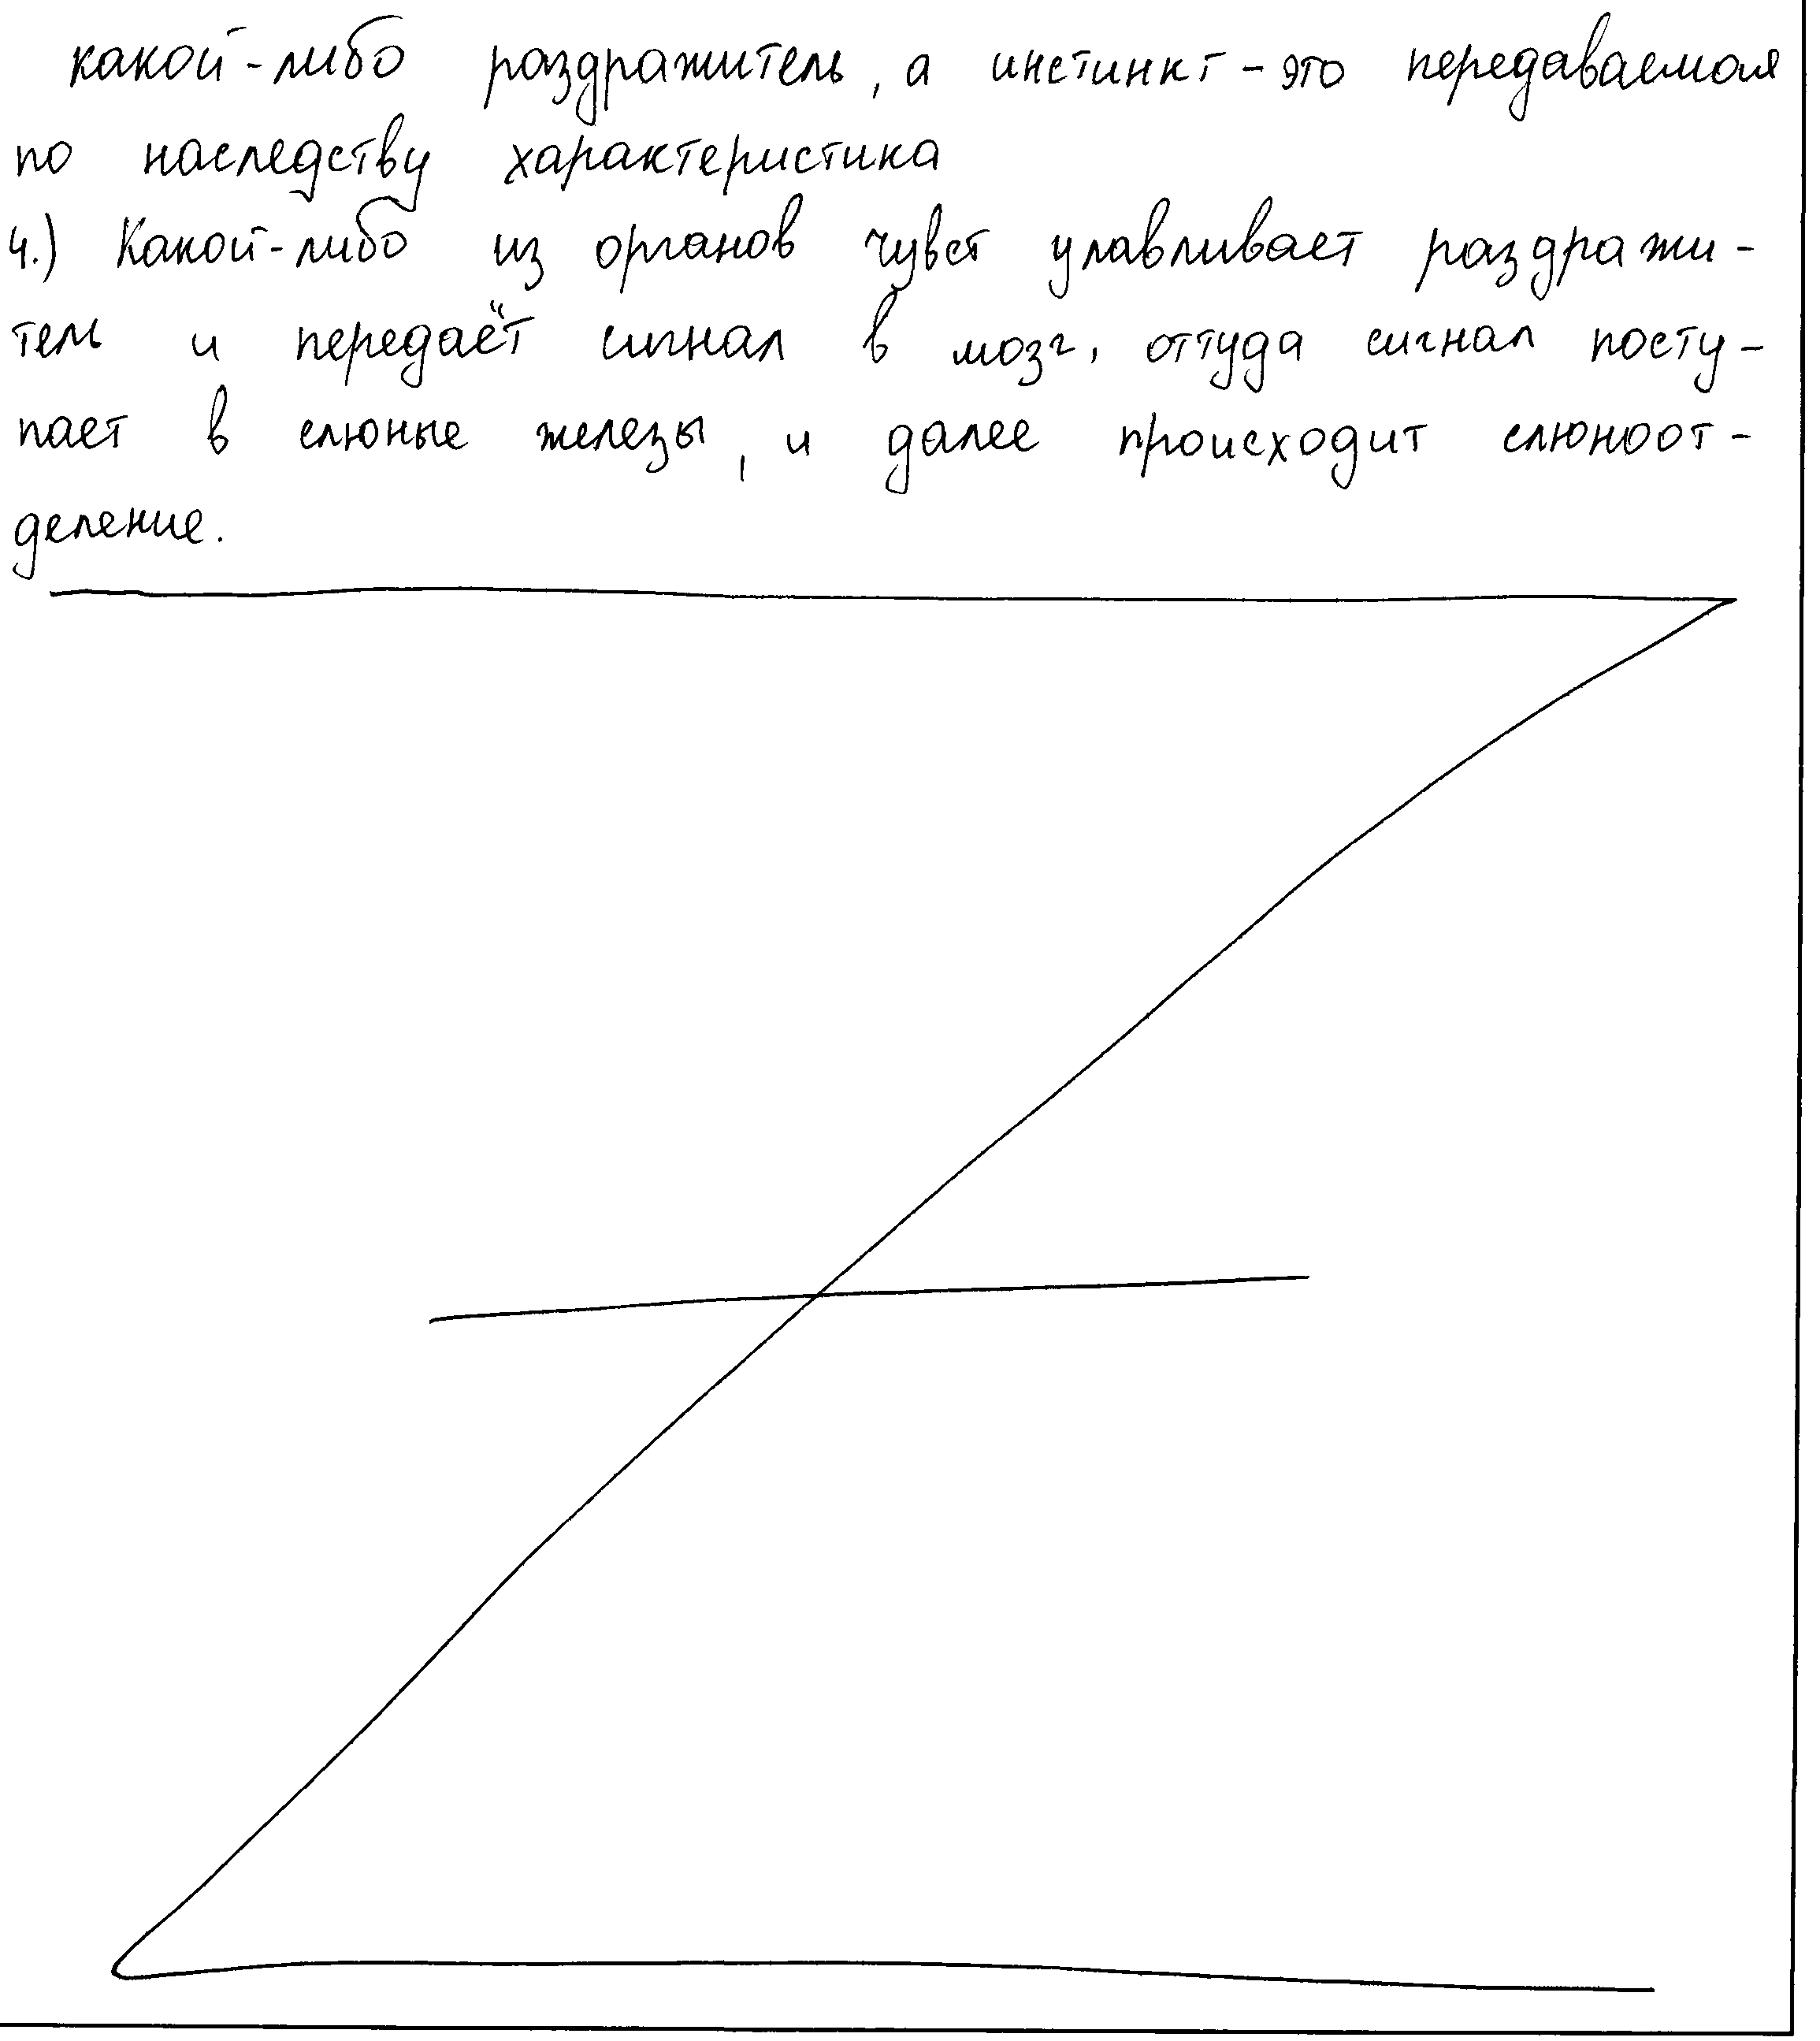 какой-либо раздражитель, а инстинкт - это передаваемая
по наследству характеристика
4.) Какой-либо из органов чувст улавливает раздражи-
тель и передаёт сигнал в мозг, оттуда сигнал посту-
пает в слюные железы, и далее происходит слюноот-
деление.